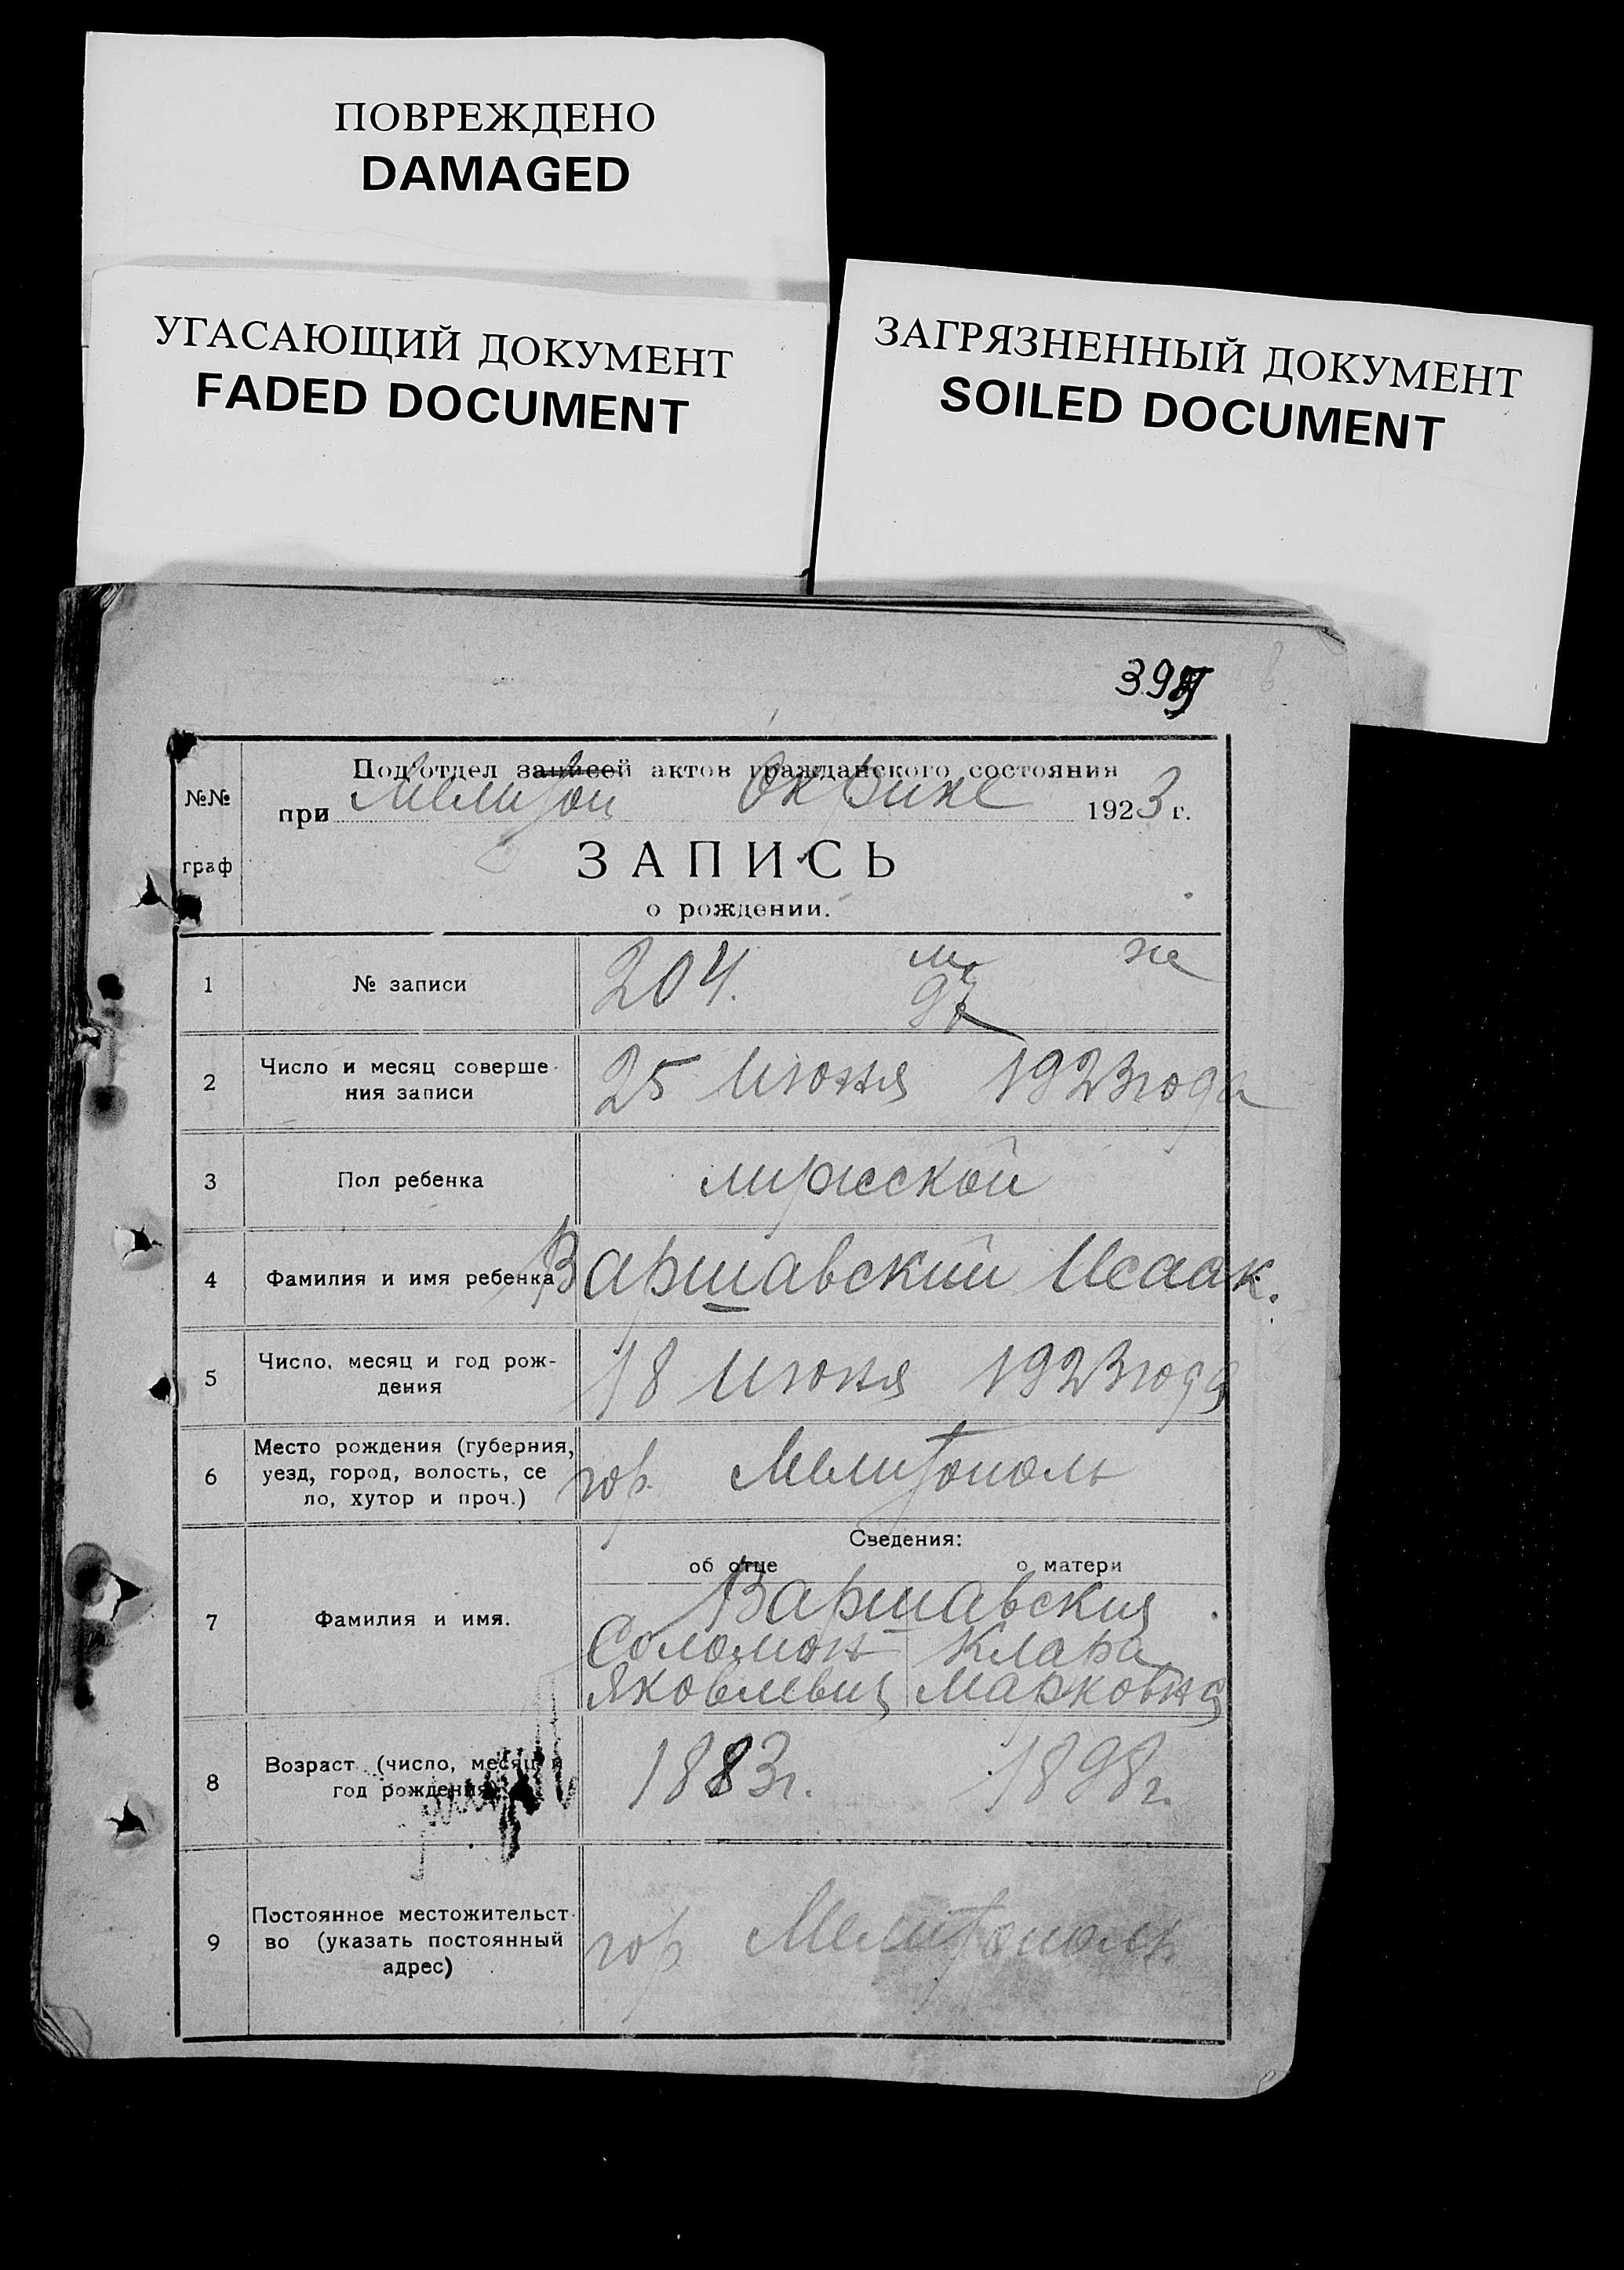 ПОВРЕЖДЕНО
DAMAGED
УГАСАЮЩИЙ ДОКУМЕНТ
FADED DOCUMENT
ЗАГРЯЗНЕННЫЙ ДОКУМЕНТ
SOILED DOCUMENT
№№
граф
Под'отдел записей актов гражданского состояния
при Мелитоп 1923 г.
ЗАПИСЬ
о рождении.
1 № записи 204. м ж
97
2 Число и месяц соверше-
ния записи
25 Июня 1923 года
3 Пол ребенка мужской
4 Фамилия и имя ребенка Варшавский Исаак.
5 Число, месяц и год рож-
дения
18 Июня 1923 года
6 Место рождения (губерния,
уезд, город, волость, се
ло, хутор и проч.)
гор. Мелитополь
Сведения:
об отце о матери
7 Фамилия и имя.
Варшавския
Соломон Клара
Яковлевич Марковна
8 Возраст (число, месяц и
год рождения)
1883г. 1898г.
9 Постоянное местожительст-
во (указать постоянный
адрес)
гор Мелитополь